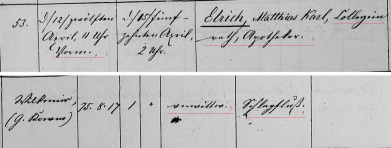 53.
D/12/zwölften
April, 11 Uhr
Vorm.
D/15/fünf-
zehnten April,
2 Uhr.
Elrich, Matthias Karl, Collegien
rath, Apotheker.
Wilkomir,
(G. Kowno)
75. 8. 17
1
"
verwittw.
Schlagfluß.